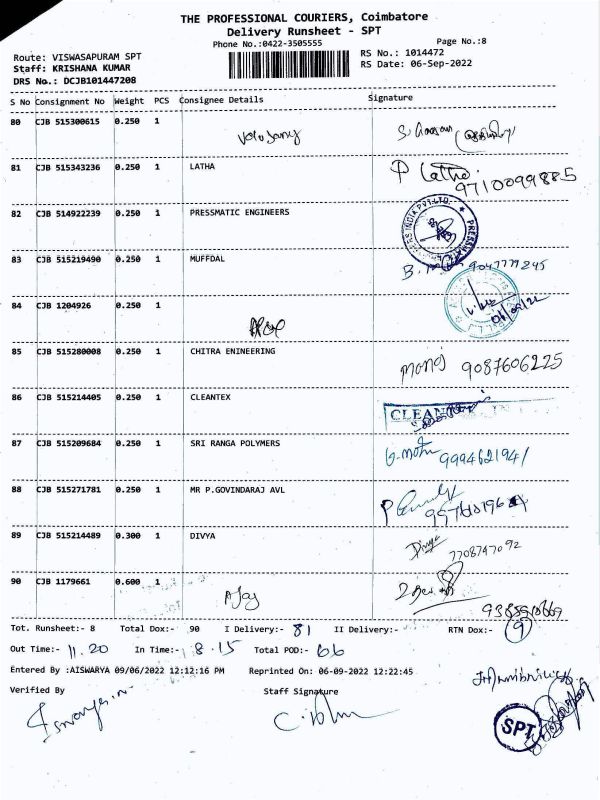 THE PROFESSIONAL COURIERS, Coimbatore
Delivery Runsheet - SPT
Phone No.:0422-3505555
Page No.:8
Route: VISWASAPURAM SPT
RS No.: 1014472
Staff: KRISHANA KUMAR
RS Date: 06-Sep-2022
DRS No.: DCJB101447208
S No Consignment No Weight PCS Consignee Details Signature
80 CJB 515300615 0.250 1
81 CJB 515343236 0.250 1 LATHA P Latha
9710099885
82 CJB 514922239 0.250 1 PRESSMATIC ENGINEERS
83 CJB 515219490 0.250 1 MUFFDAL
9047779245
84 CJB 1204926 0.250 1
85 CJB 515280008 0.250 1 CHITRA ENINEERING manoj 9087606225
86 CJB 515214405 0.250 1 CLEANTEX
87 CJB 515209684 0.250 1 SRI RANGA POLYMERS
88 CJB 515271781 0.250 1 MR P.GOVINDARAJ AVL
89 CJB 515214489 0.300 1 DIVYA Divya
7708747092
90 CJB 1179661 0.600 1
AJay
Tot. Runsheet:- 8 Total Dox:- 90 I Delivery:- 81 II Delivery:- RTN Dox:- 9
Out Time:- 11.20 In Time:- 8.15 Total POD:- 66
Entered By :AISWARYA 09/06/2022 12:12:16 PM Reprinted On: 06-09-2022 12:22:45
Verified By Staff Signature
SPT